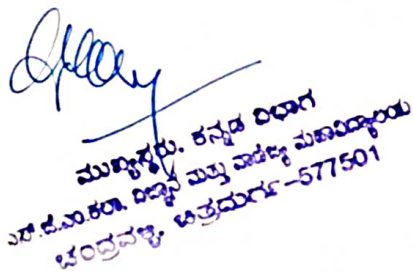 ಮುಖ್ಯಸ್ಥರು. ಕನ್ನಡ ವಿಭಾಗ
ಎಸ್.ಜೆ.ಎಂ.ಕಲಾ, ವಿಜ್ಞಾನ ಮತ್ತು ವಾಣಿಜ್ಯ ಮಹಾವಿದ್ಯಾಲಯ
ಚಂದ್ರವಳ್ಳಿ, ಚಿತ್ರದುರ್ಗ-577501